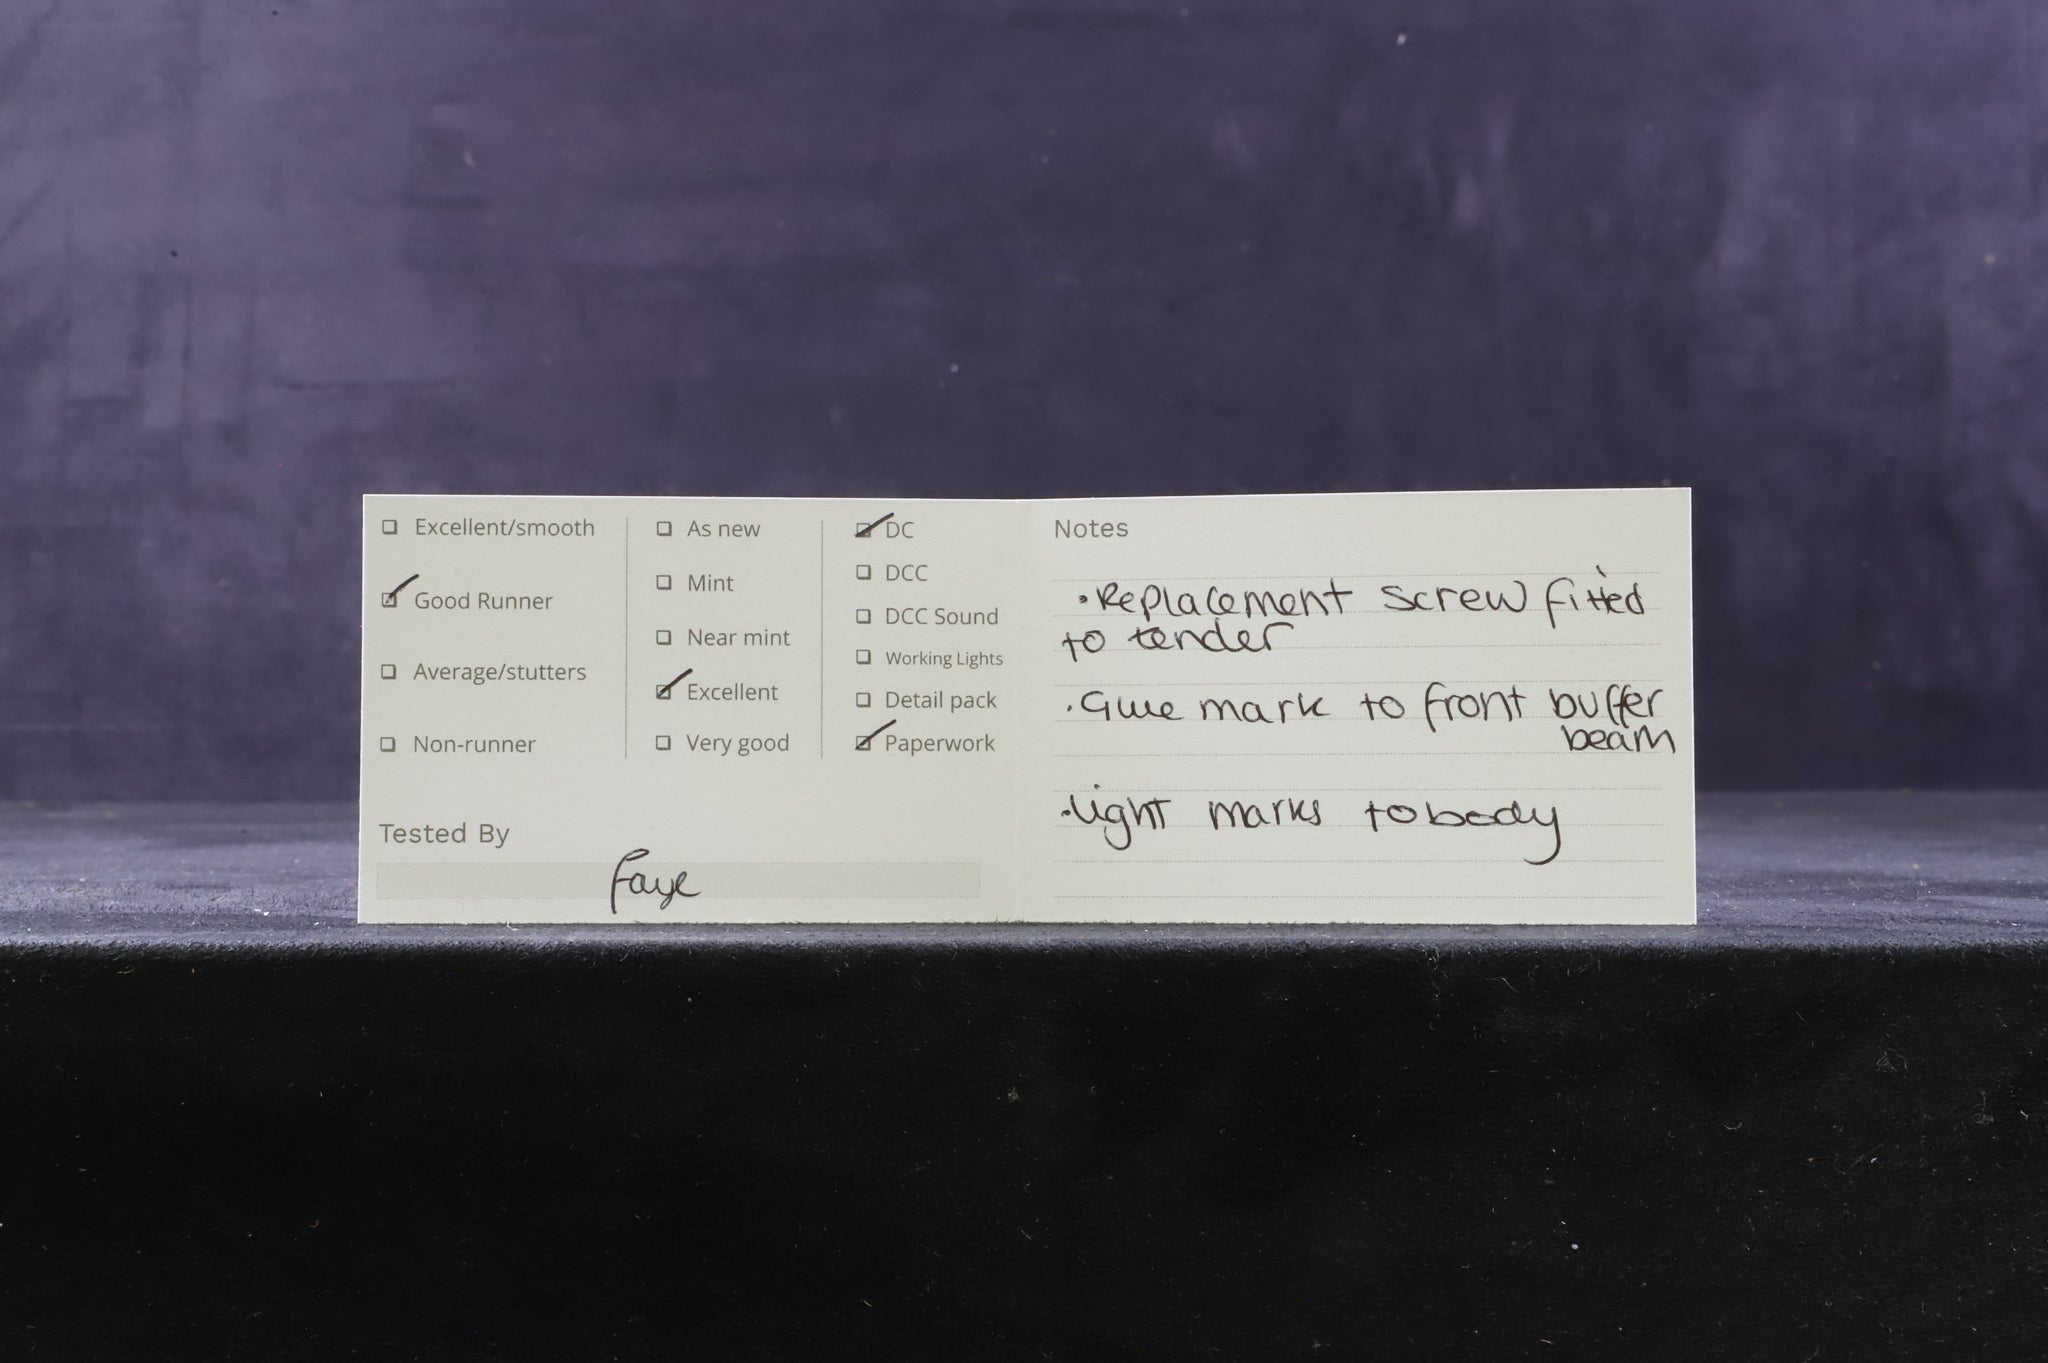 ☐ Excellent/smooth
☑ Good Runner
☐ Average/stutters
☐ Non-runner
☐ As new
☐ Mint
☐ Near mint
☑ Excellent
☐ Very good
☑ DC
☐ DCC
☐ DCC Sound
☐ Working Lights
☐ Detail pack
☑ Paperwork
Tested By
Faye
Notes
• Replacement screw fitted
to tender
• Glue mark to front buffer
beam
• Light marks to body